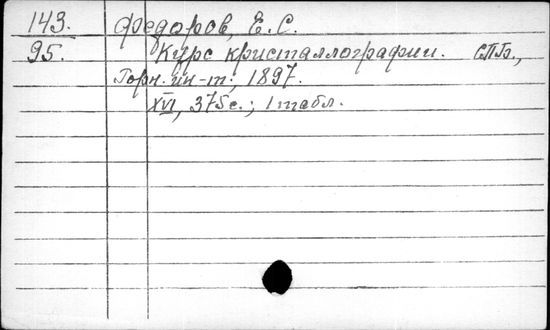 143. Федоров, Е. С.
95. Курс кристаллографии. СПб.,
Горн. ин-т, 1897.
XVI, 375 с.; 1 табл.